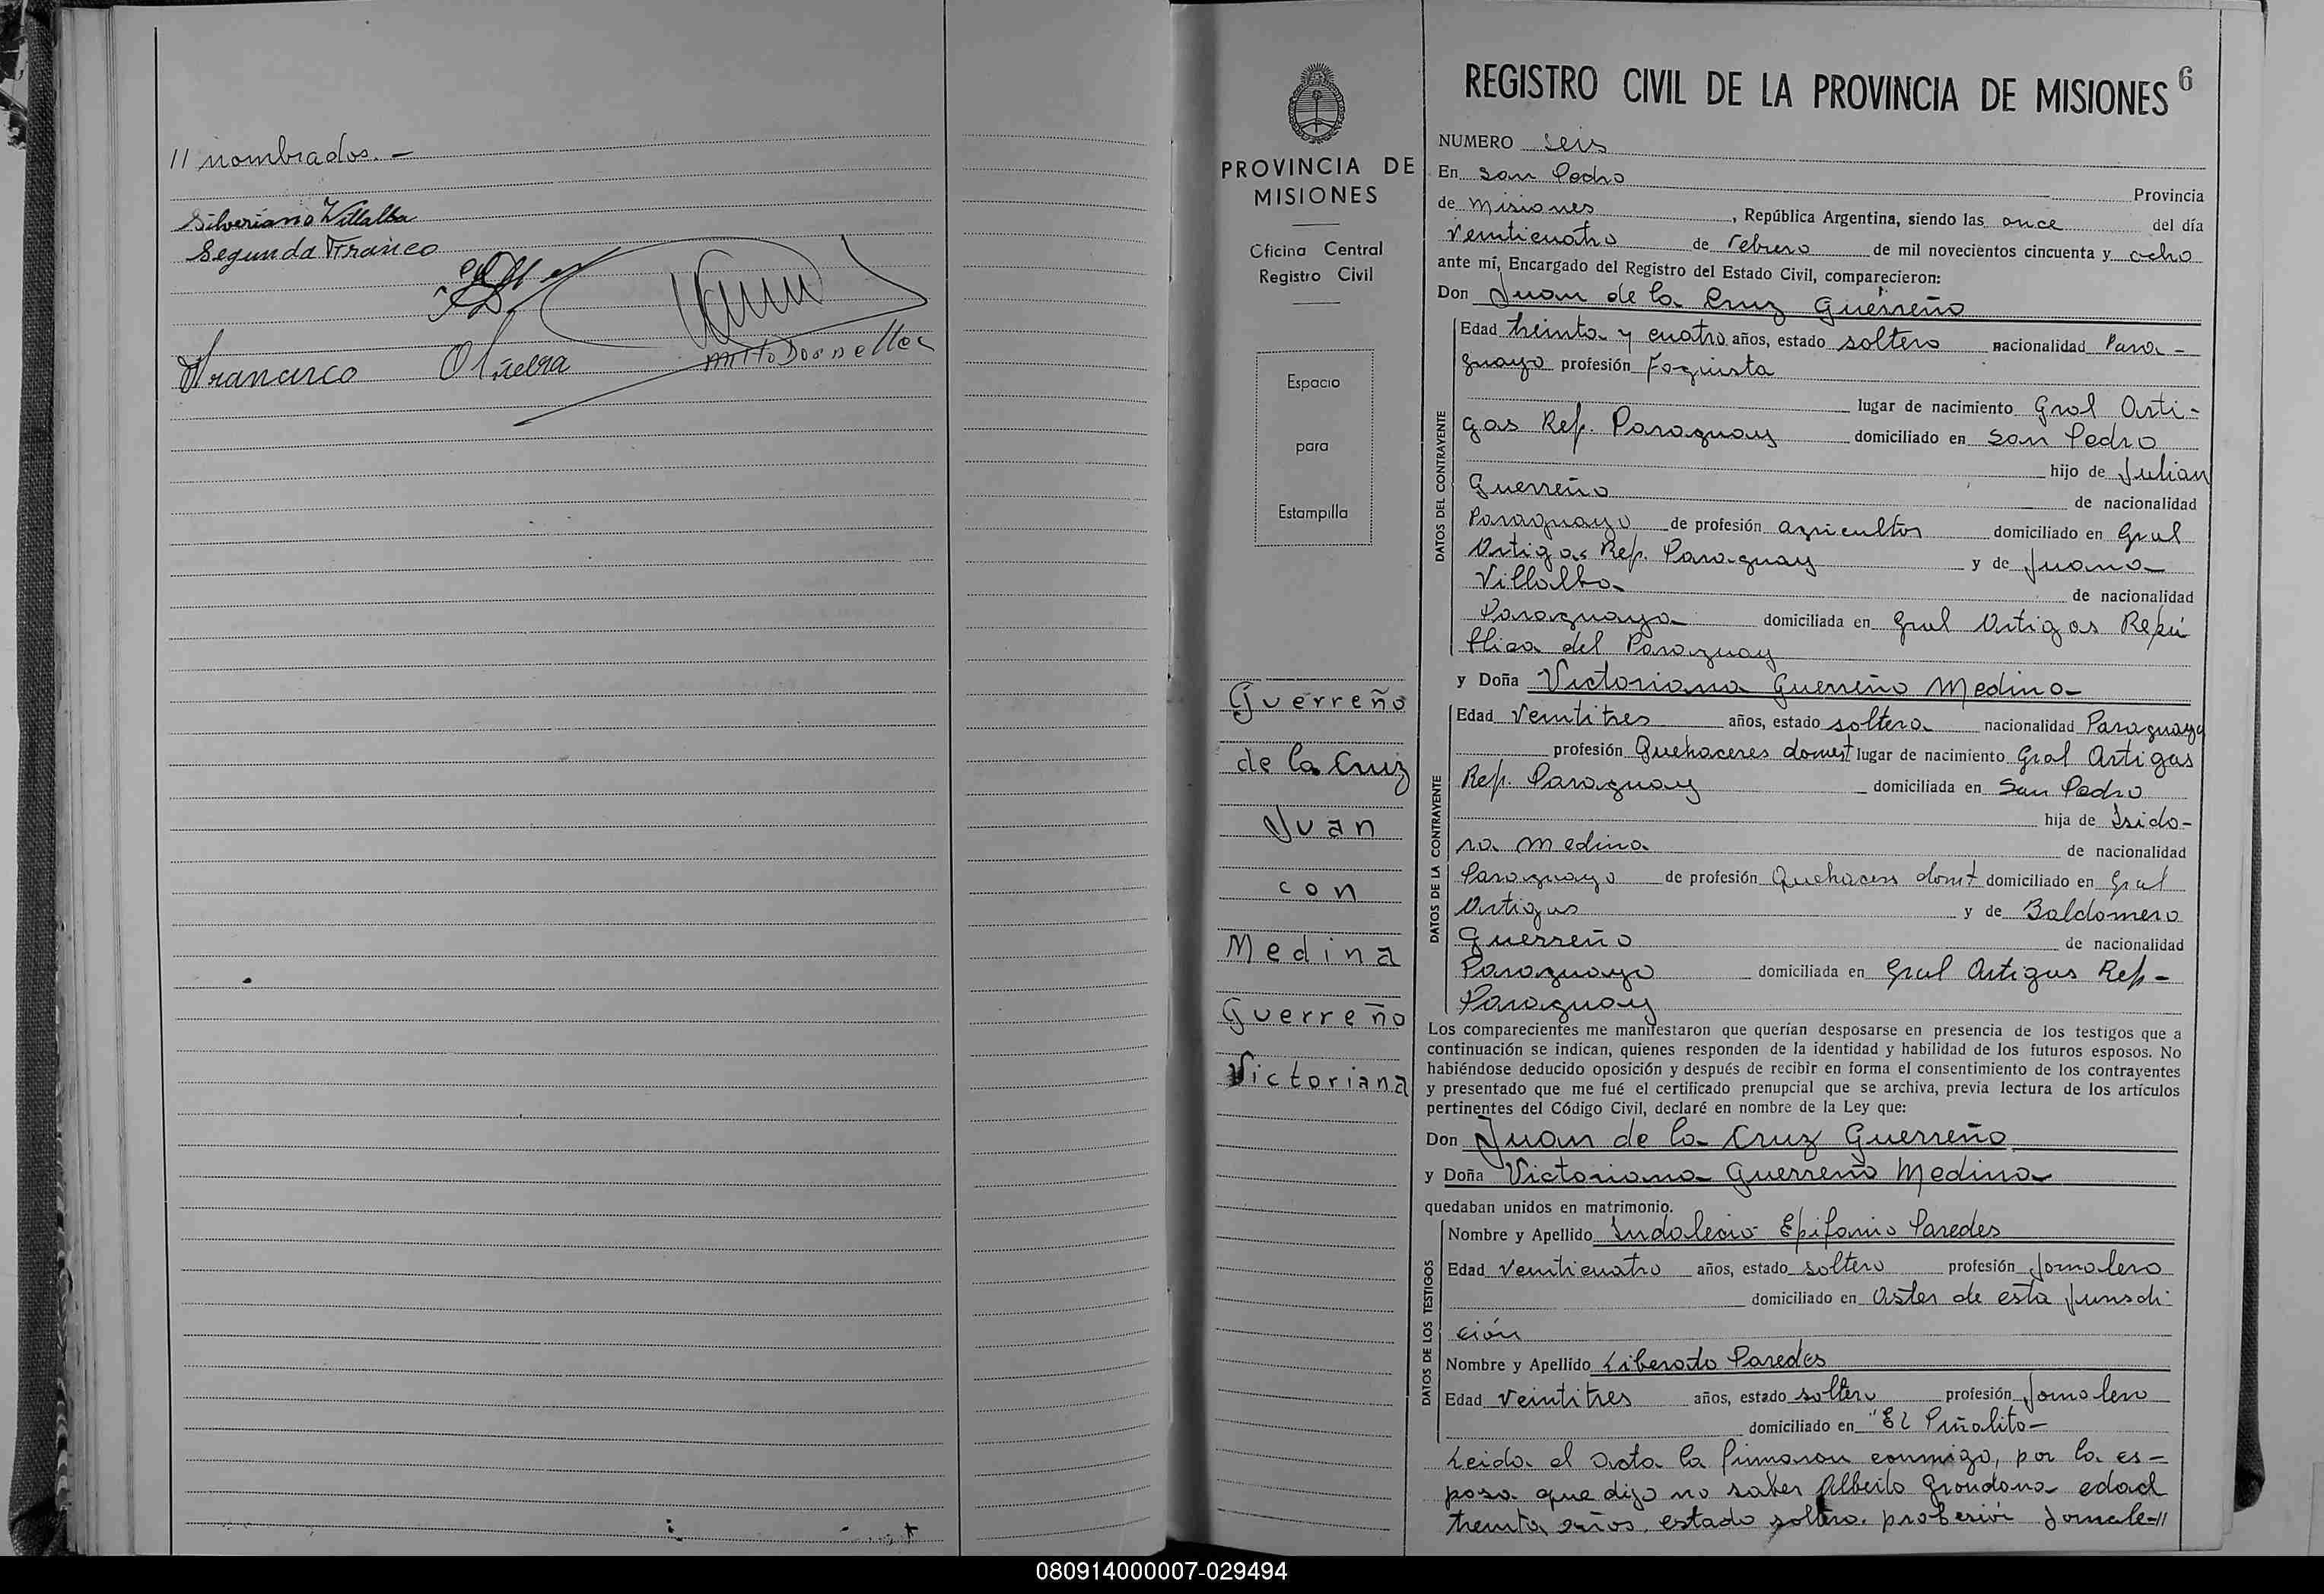 // nombrados. —
Silveriano Villalba
Segunda Franco
Francisco Olivera
REGISTRO CIVIL DE LA PROVINCIA DE MISIONES 6
PROVINCIA DE
MISIONES
Oficina Central
Registro Civil
Espacio
para
Estampilla
Guerreño
de la Cruz
Juan
con
Medina
Guerreño
Victoriana
NUMERO Seis
En San Pedro Provincia
de Misiones, República Argentina, siendo las once del día
Veinticuatro de Febrero de mil novecientos cincuenta y ocho
ante mí, Encargado del Registro del Estado Civil, comparecieron:
Don Juan de la Cruz Guerreño
DATOS DEL CONTRAYENTE
Edad treinta y cuatro años, estado soltero nacionalidad Para-
guayo profesión Foguista
lugar de nacimiento Gral Arti-
gas Rep. Paraguay domiciliado en San Pedro
hijo de Julian
Guerreño de nacionalidad
Paraguayo de profesión agricultor domiciliado en Gral
Artigas Rep. Paraguay y de Juana
Villalba de nacionalidad
Paraguaya domiciliada en Gral Artigas Repú
blica del Paraguay
y Doña Victoriana Guerreño Medina
DATOS DE LA CONTRAYENTE
Edad Veintitres años, estado soltera nacionalidad Paraguaya
profesión Quehaceres domest lugar de nacimiento Gral Artigas
Rep. Paraguay domiciliada en San Pedro
hija de Isido-
ra Medina de nacionalidad
Paraguayo de profesión Quehacers domt domiciliado en Gral
Artigas y de Baldomero
Guerreño de nacionalidad
Paraguayo domiciliada en Gral Artigas Rep-
Paraguay
Los comparecientes me manifestaron que querían desposarse en presencia de los testigos que a
continuación se indican, quienes responden de la identidad y habilidad de los futuros esposos. No
habiéndose deducido oposición y después de recibir en forma el consentimiento de los contrayentes
y presentado que me fué el certificado prenupcial que se archiva, previa lectura de los artículos
pertinentes del Código Civil, declaré en nombre de la Ley que:
Don Juan de la Cruz Guerreño
y Doña Victoriana Guerreño Medina
quedaban unidos en matrimonio.
DATOS DE LOS TESTIGOS
Nombre y Apellido Indalecio Epifanio Paredes
Edad Veinticuatro años, estado soltero profesión Jornalero
domiciliado en Aster de esta Jurisdi-
ción
Nombre y Apellido Liberato Paredes
Edad Veintitres años, estado soltero profesión Jornalero
domiciliado en "El Piñalito-
Leida el acta la firmaron conmigo, por la es-
posa que dijo no saber Alberto Grondona edad
treinta años, estado soltero, profesión Jornale-//
080914000007-029494